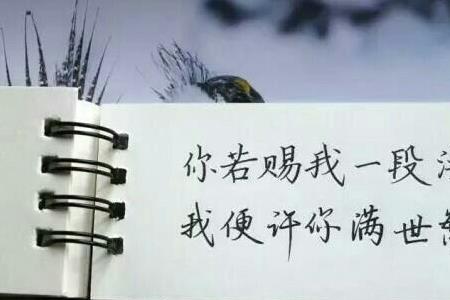 你若赐我一段
我便许你满世